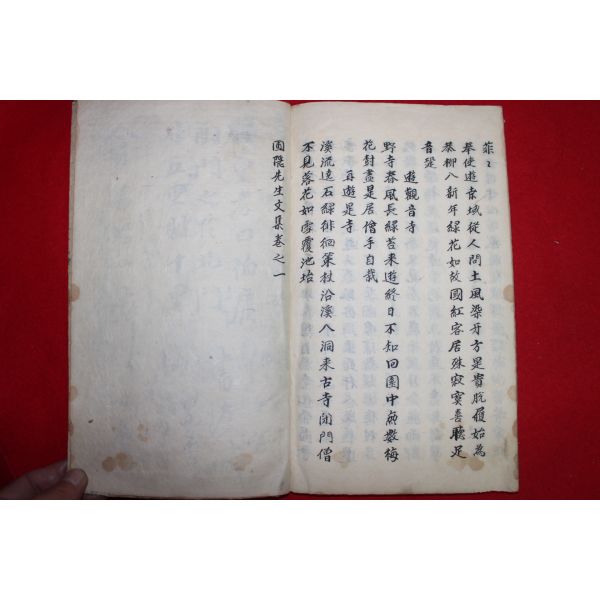 菲々
奉使遊桑域從人問土風染牙方是貴脫履始為
恭柳入新年綠花如故國紅客居殊寂寞喜聽足
音跫
遊觀音寺
野寺春風長綠苔來遊終日不知回園中無數梅
花封盡是居僧手自哉
再遊是寺
溪流遶石綠徘徊策杖沿溪入洞來古寺閉門僧
不見落花如雪覆池坮
圃隠先生文集卷之一